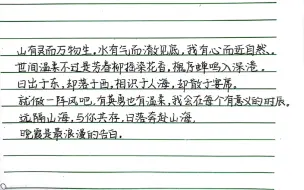 山有灵而万物生，水有气而清见底，我有心而近自然。
世间温柔不过是芳春柳摇染花香，槐序蝉鸣入深港。
日出于东，却落于西，相识于人海，却散于宴席。
就做一阵风吧，有真寄也有温柔，我会在每个有意义的时辰，
远隔山海，与你共存，日落奔赴山海，
晚霞是最浪漫的告白。